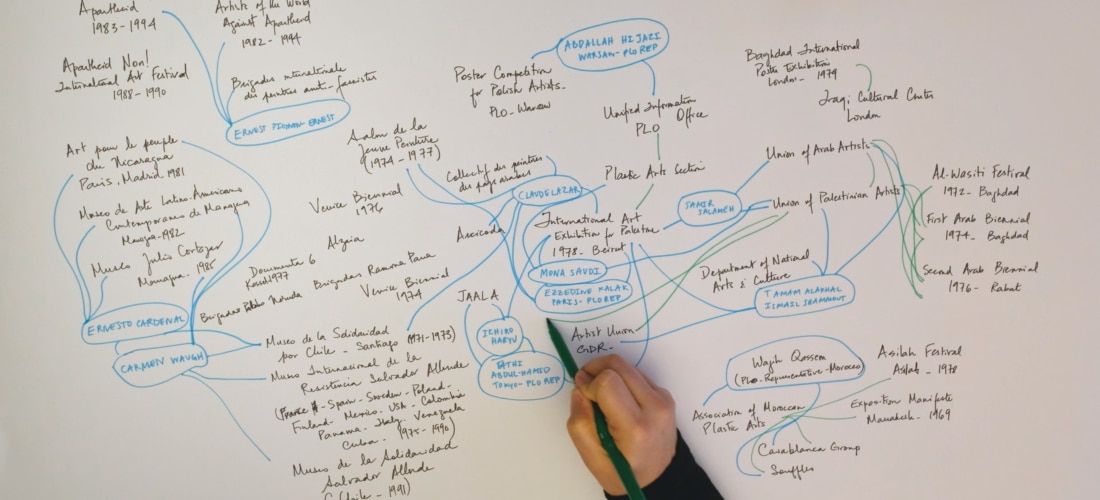 Apartheid
1983-1994
Artists of the World
Against Apartheid
1982-1994
Apartheid Non!
International Art Festival
1988-1990
Brigades internationale
des peintres anti-fascistes
ERNEST PIGNON-ERNEST
ABDALLAH HIJAZI
WARSAW-PLO REP
Poster Competition
for Polish Artists-
PLO-Warsaw
Unified Information
PLO Office
Baghdad International
Poster Exhibition
London-1979
Iraqi Cultural Center
London
Art pour le peuple
du Nicaragua
Paris, Madrid 1981
Salon de la
Jeune Peinture
(1974-1977)
Collectif des peintres
des pays arabes
CLAUDE LAZAR
Plastic Arts Section
Union of Arab Artists
Al-Wasiti Festival
1972-Baghdad
Museo de Arte Latino-Americano
Contemporaneo de Managua
Managua-1982
Venice Biennial
1976
International Art
Exhibition for Palestine
1978-Beirut
SAMIR
SALAMEH
Union of Palestinian Artists
First Arab Biennial
1974-Baghdad
Museo Julio Cortazar
Managua-1985
Algeria
MONA SAUDI
Department of National
Arts & Culture
Second Arab Biennial
1976-Rabat
Documenta 6
Kassel 1977
Brigadas Ramona Parra
Venice Biennial
1974
EZZEDINE KALAK
PARIS-PLO REP
TAMAM ALAKHAL
ISMAIL SHAMMOUT
ERNESTO CARDENAL
Brigadas Pablo Neruda
JAALA
ICHIRO
HARYU
Artist Union
GDR-
CARMEN WAUGH
Museo de la Solidaridad
por Chile-Santiago (1971-1973)
FATHI
ABDUL-HAMID
TOKYO-PLO REP
Wajih Qassem
(PLO-Representative-Morocco)
Asilah Festival
Asilah-1978
Museo International de la
Resistencia Salvador Allende
(France-Spain-Sweden-Poland-
Finland-Mexico-USA-Colombia
Panama-Italy-Venezuela
Cuba-(1975-1990)
Association of Moroccan
Plastic Arts
Exposition Manifeste
Marrakech-1969
Casablanca Group
Souffles
Museo de la Solidaridad
Salvador Allende
(Chile-1991)